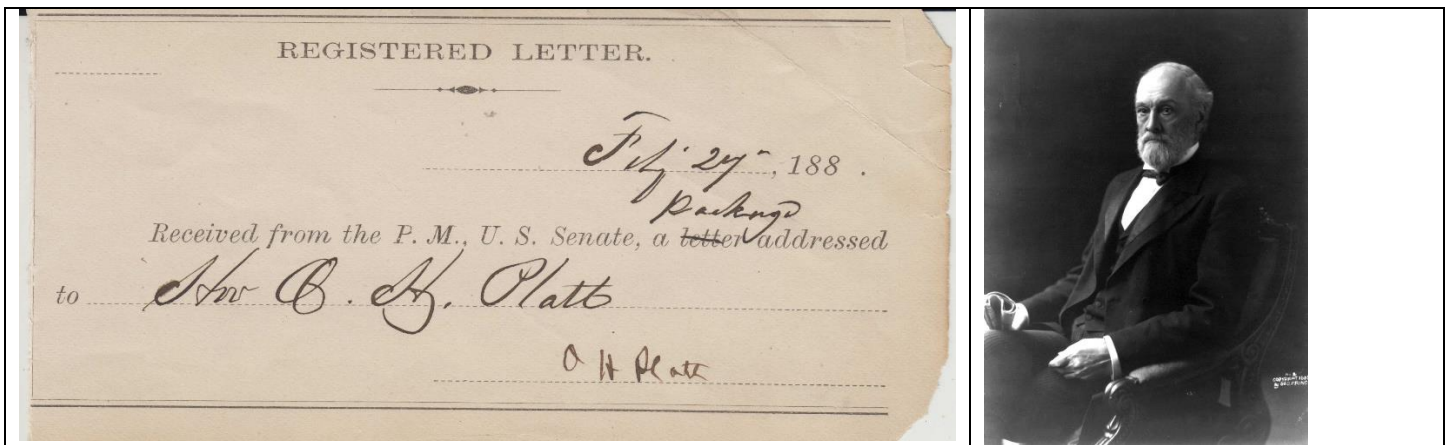 REGISTERED LETTER.
Feby 27", 188 .
Package
Received from the P. M., U. S. Senate, a letter addressed
to Hon O. H. Platt
O H Platt
COPYRIGHT